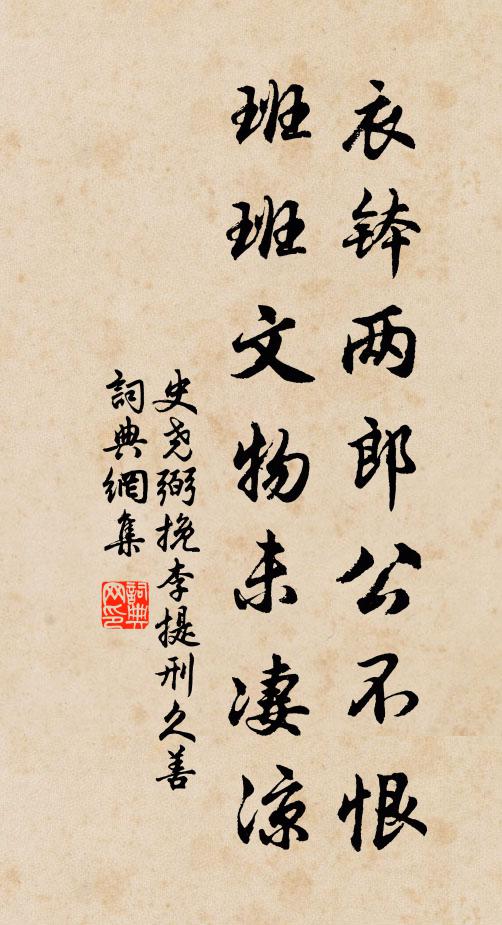 衣钵两郎公不恨
班班文物未凄凉
史尧弼挽李提刑久善
詞典網集
詞典網印